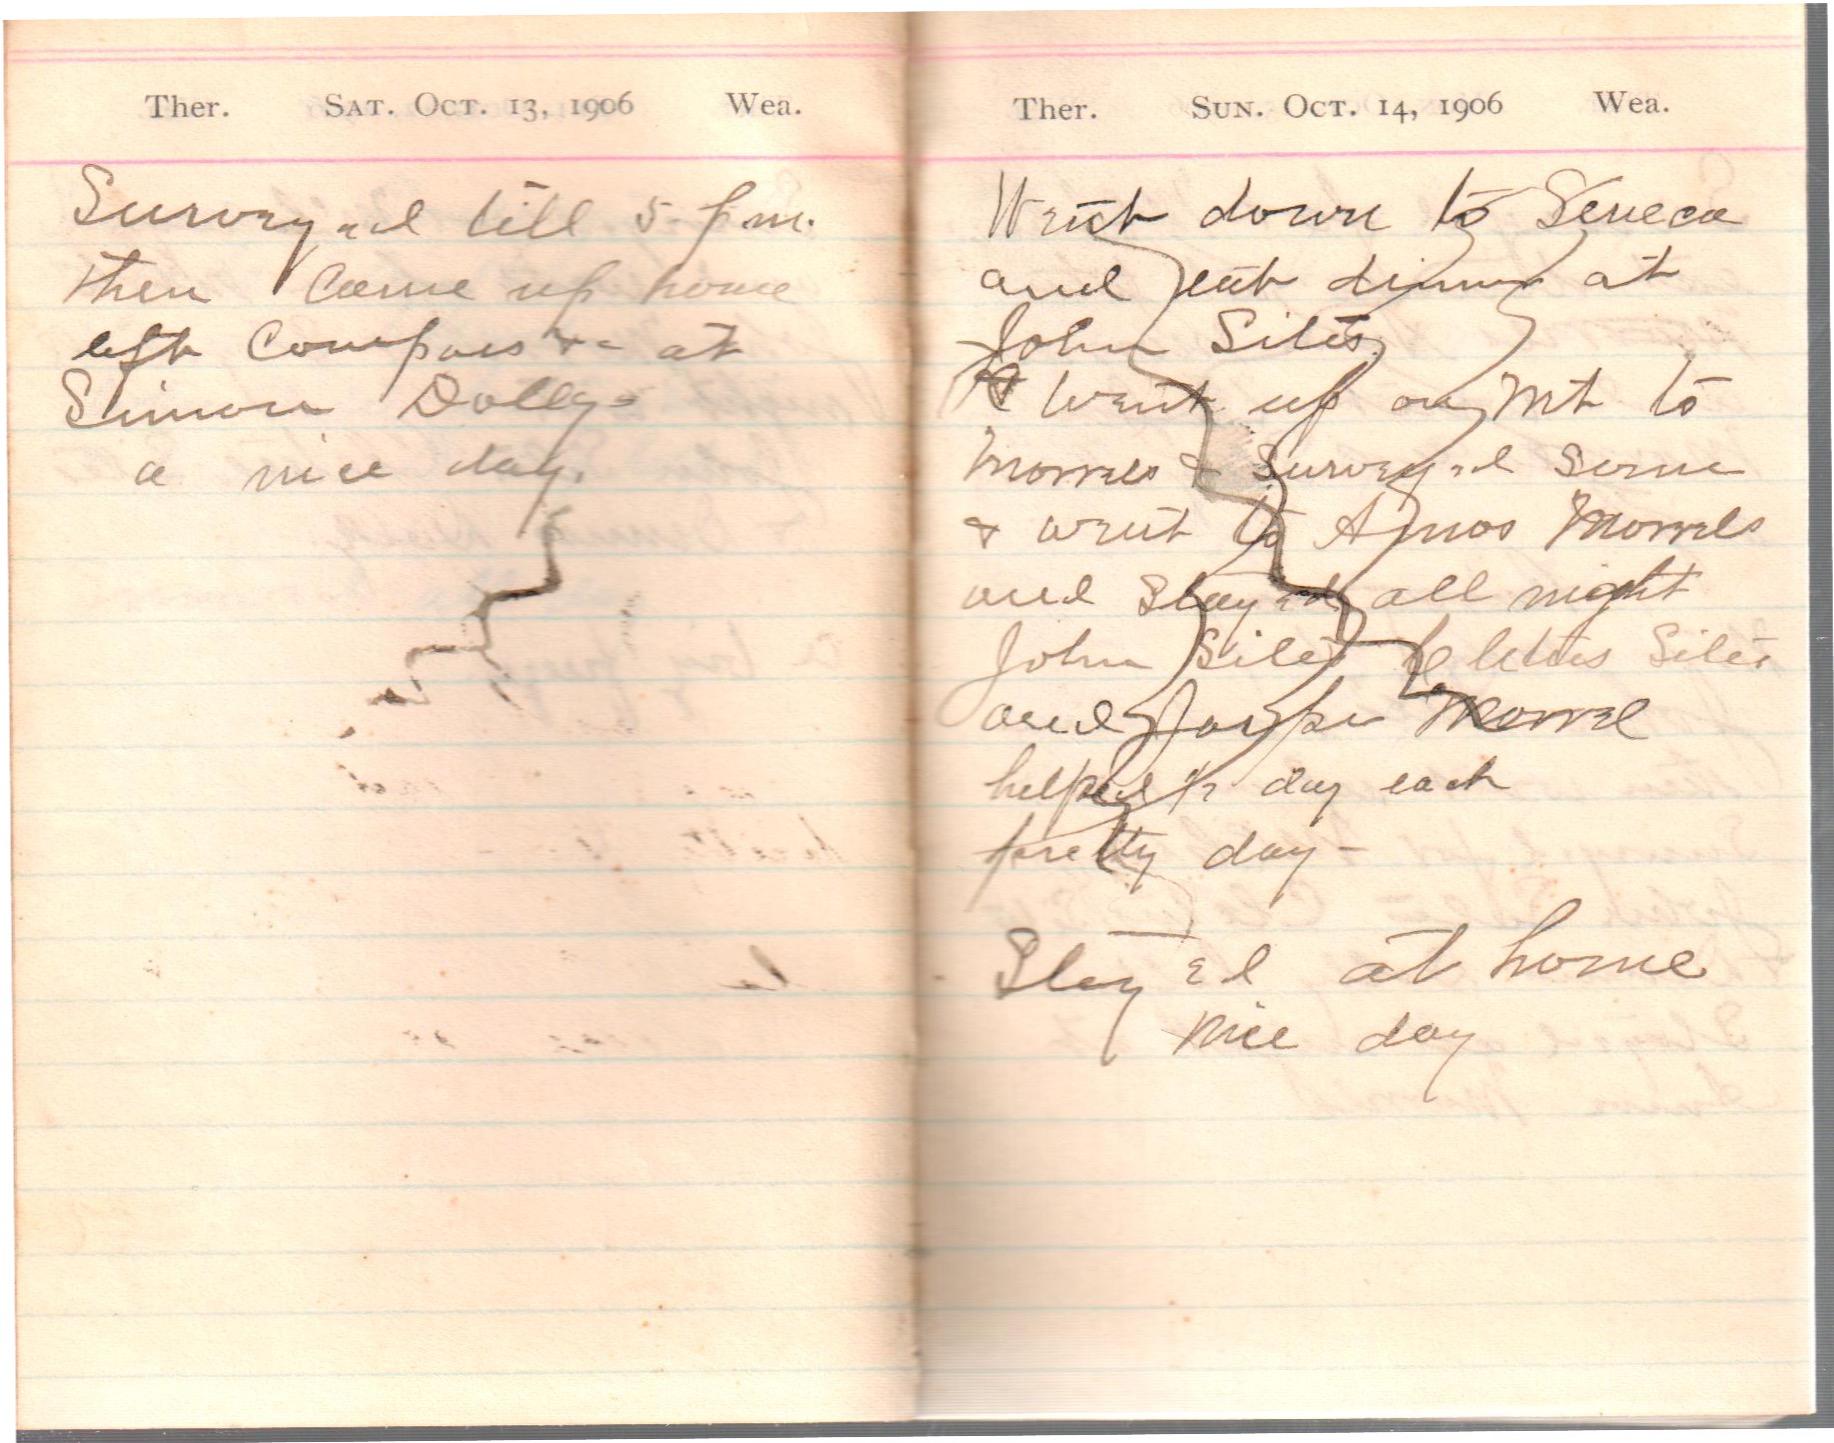 Ther. Sat. Oct. 13, 1906 Wea.
Surveyed till 5 p.m.
then came up home
left Compass &c at
Simon Dollys
a nice day.
Ther. Sun. Oct. 14, 1906 Wea.
Went down to Seneca
and eat dinner at
John Sites
& went up on Mt to
Morrels & Surveyed some
& went to Amos Morrels
and Stayed all night
John Sites Cletus Sites
and Morrel
helped ½ day each
pretty day -
Stayed at home
nice day